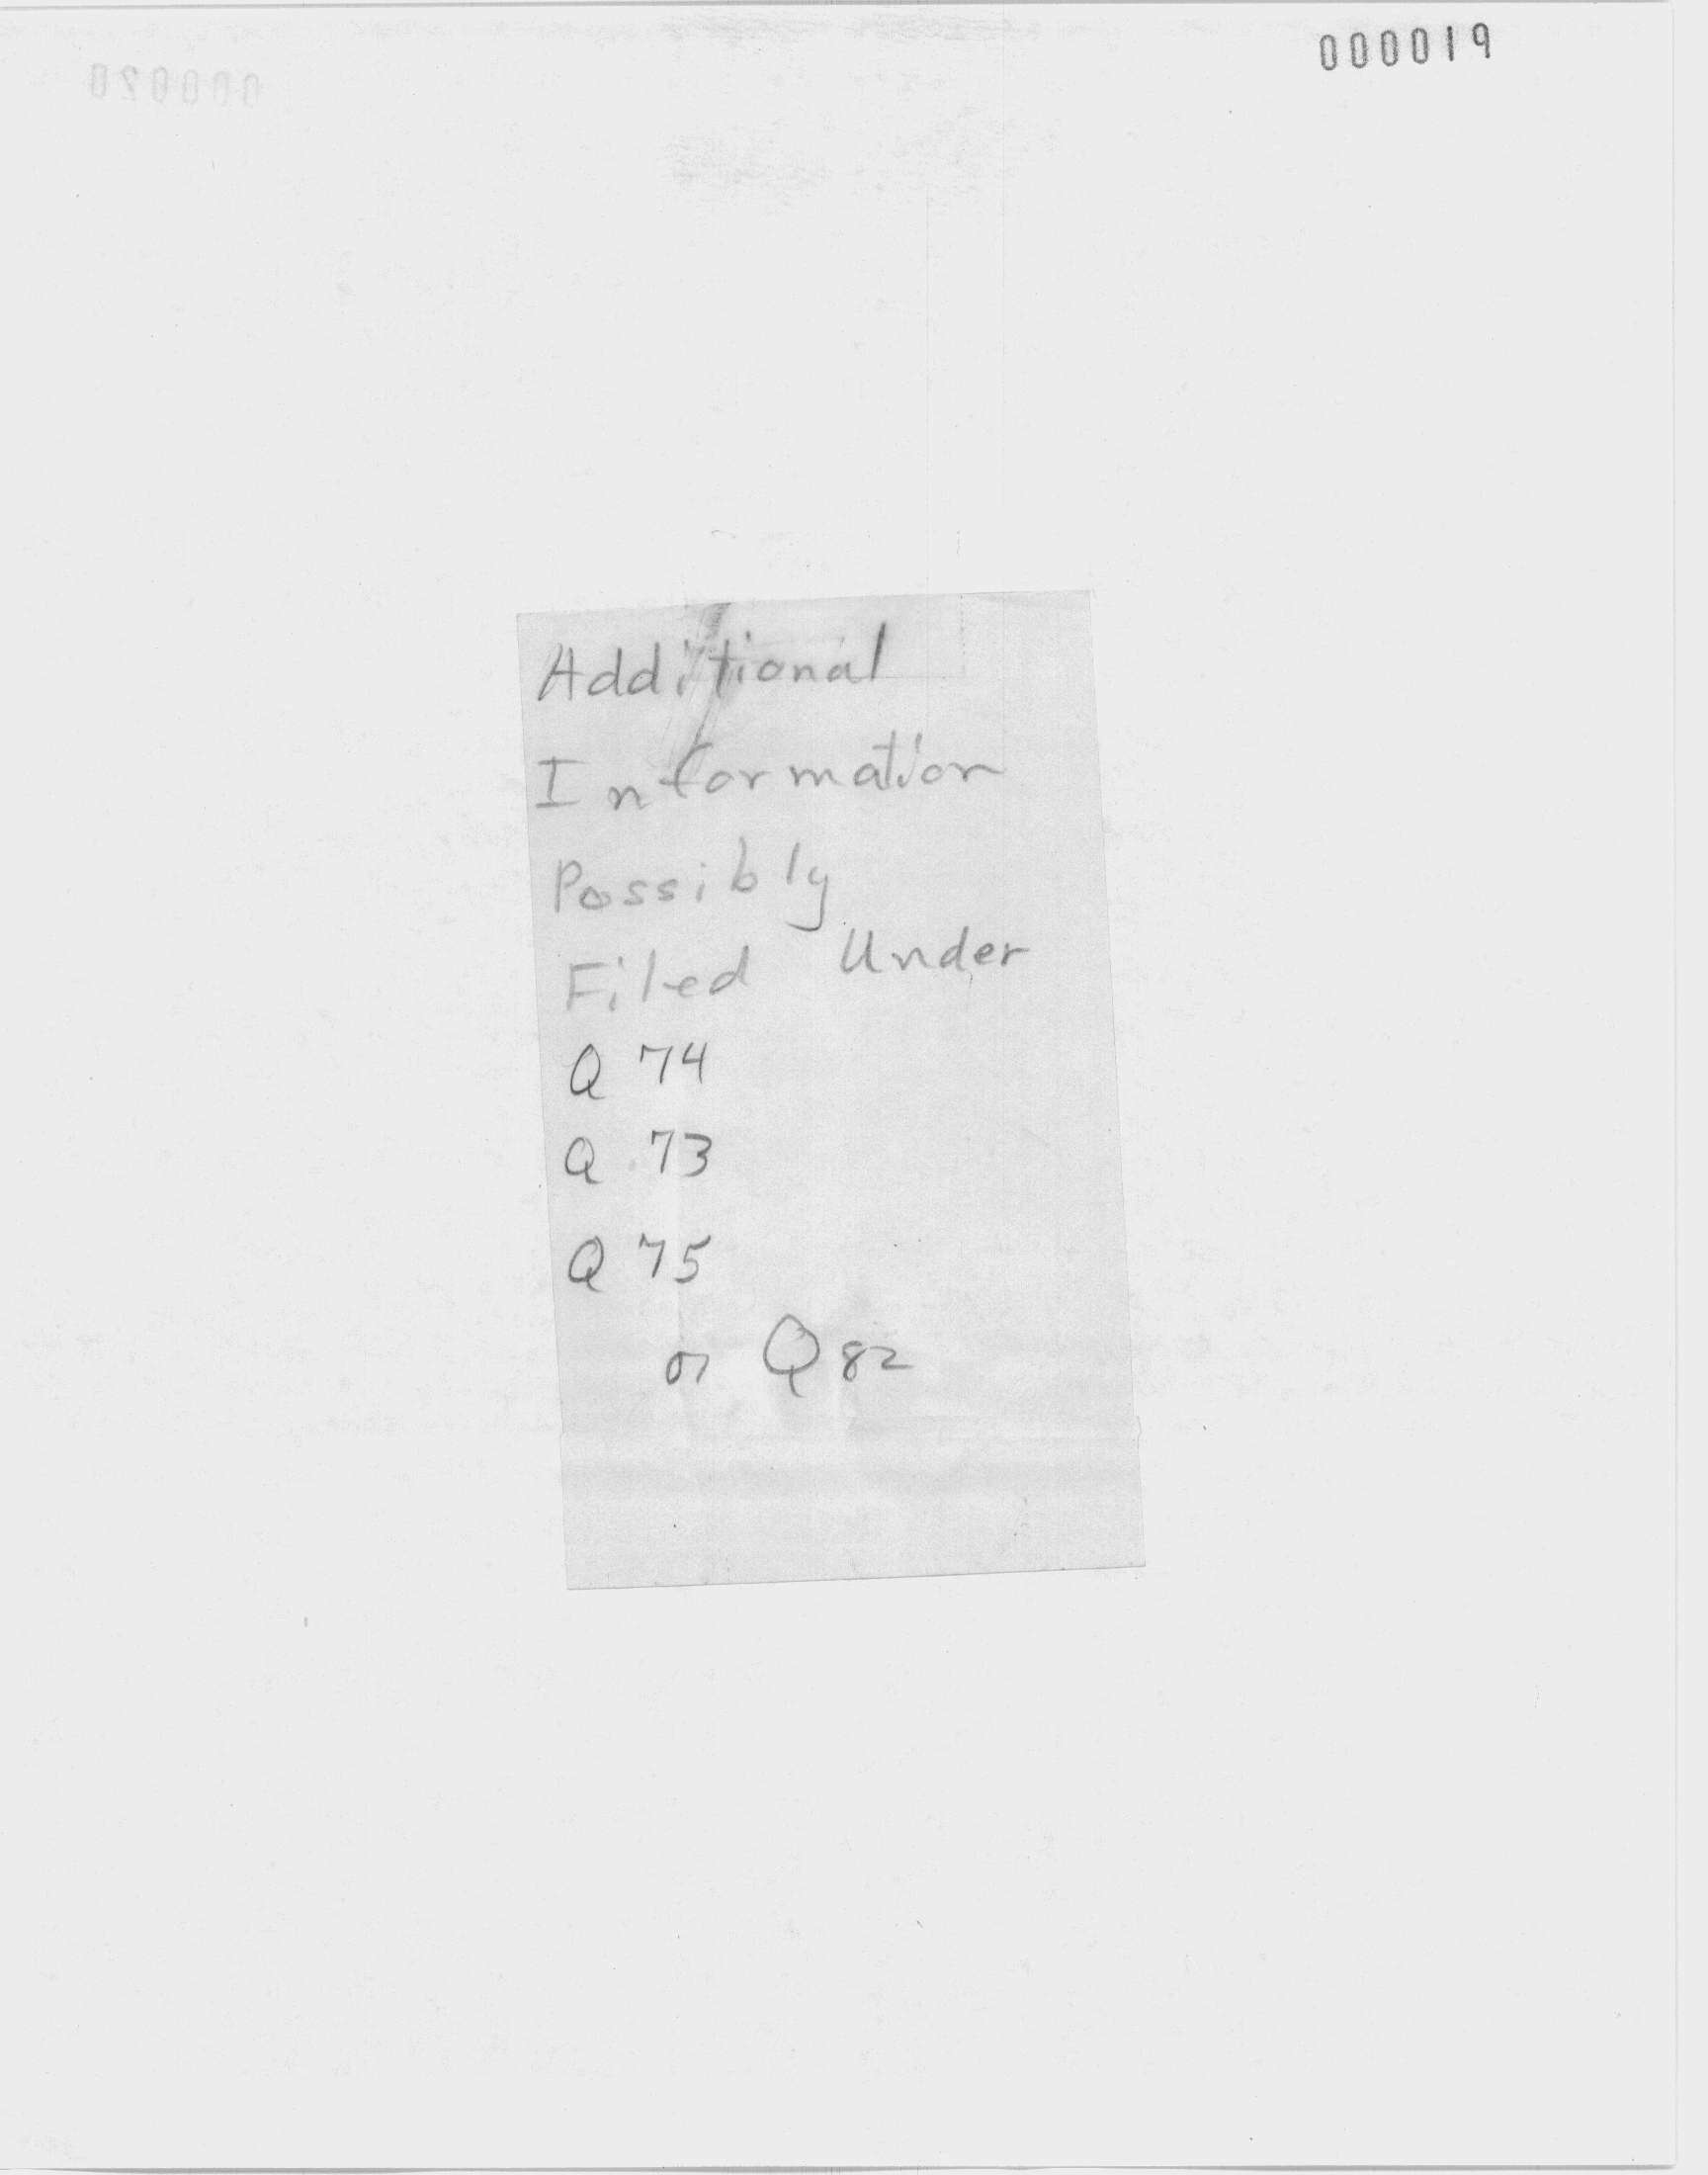 000019
000020
Additional
Information
Possibly
Filed Under
Q 74
Q 73
Q 75
or Q82